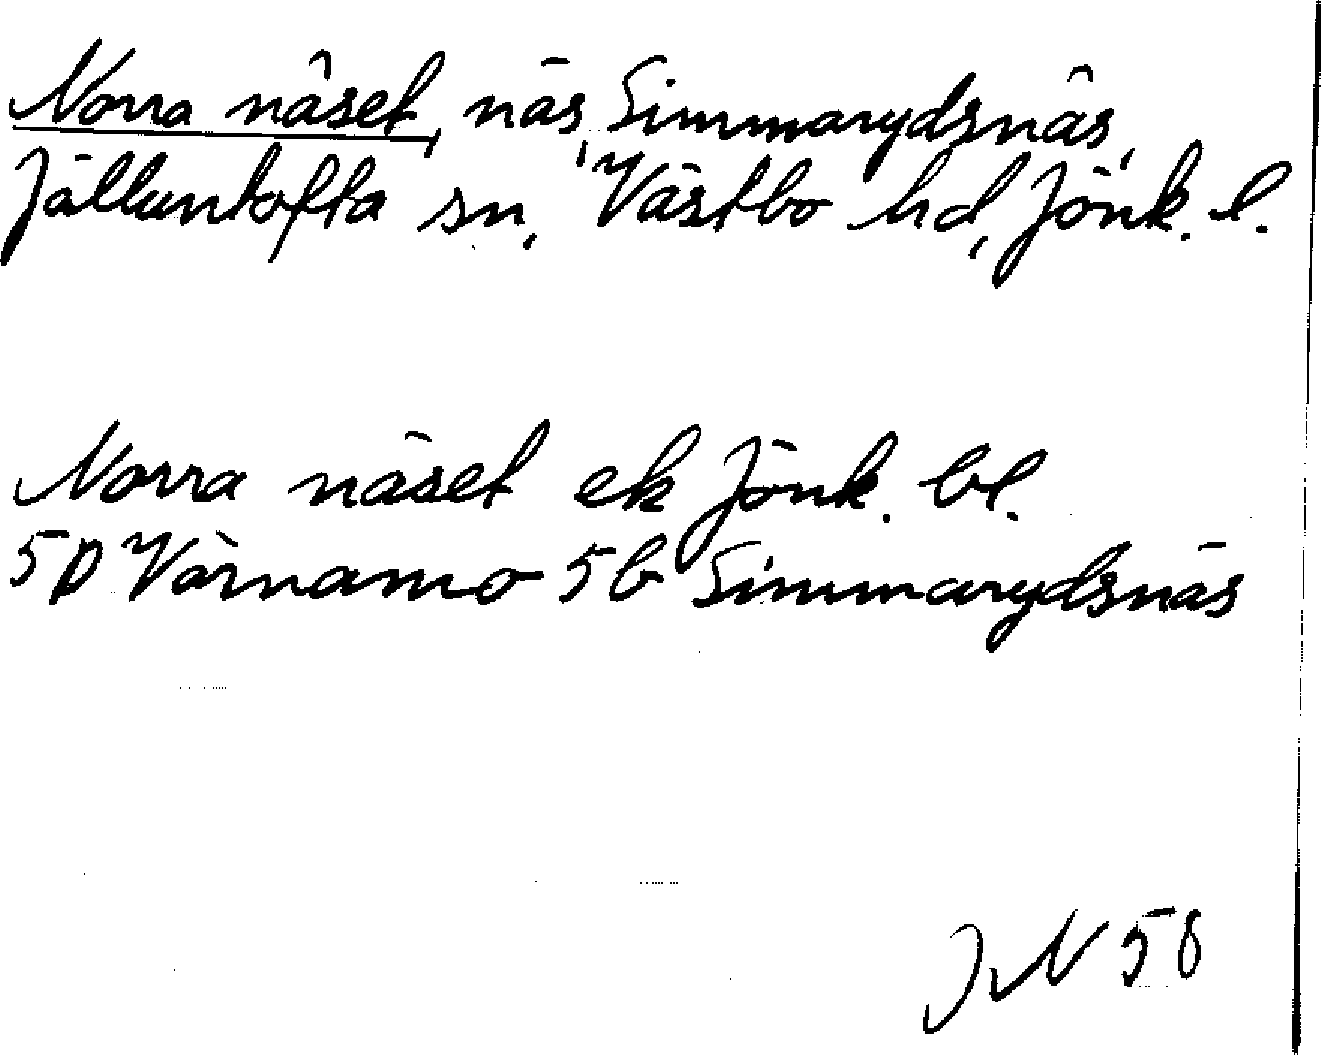 Norra näset, näs, Simmarydsnäs,
Jälluntofta sn, Västbo hd, Jönk. l.
Norra näset ek Jönk. bl.
5D Värnamo 5b Simmarydsnäs
JN 58